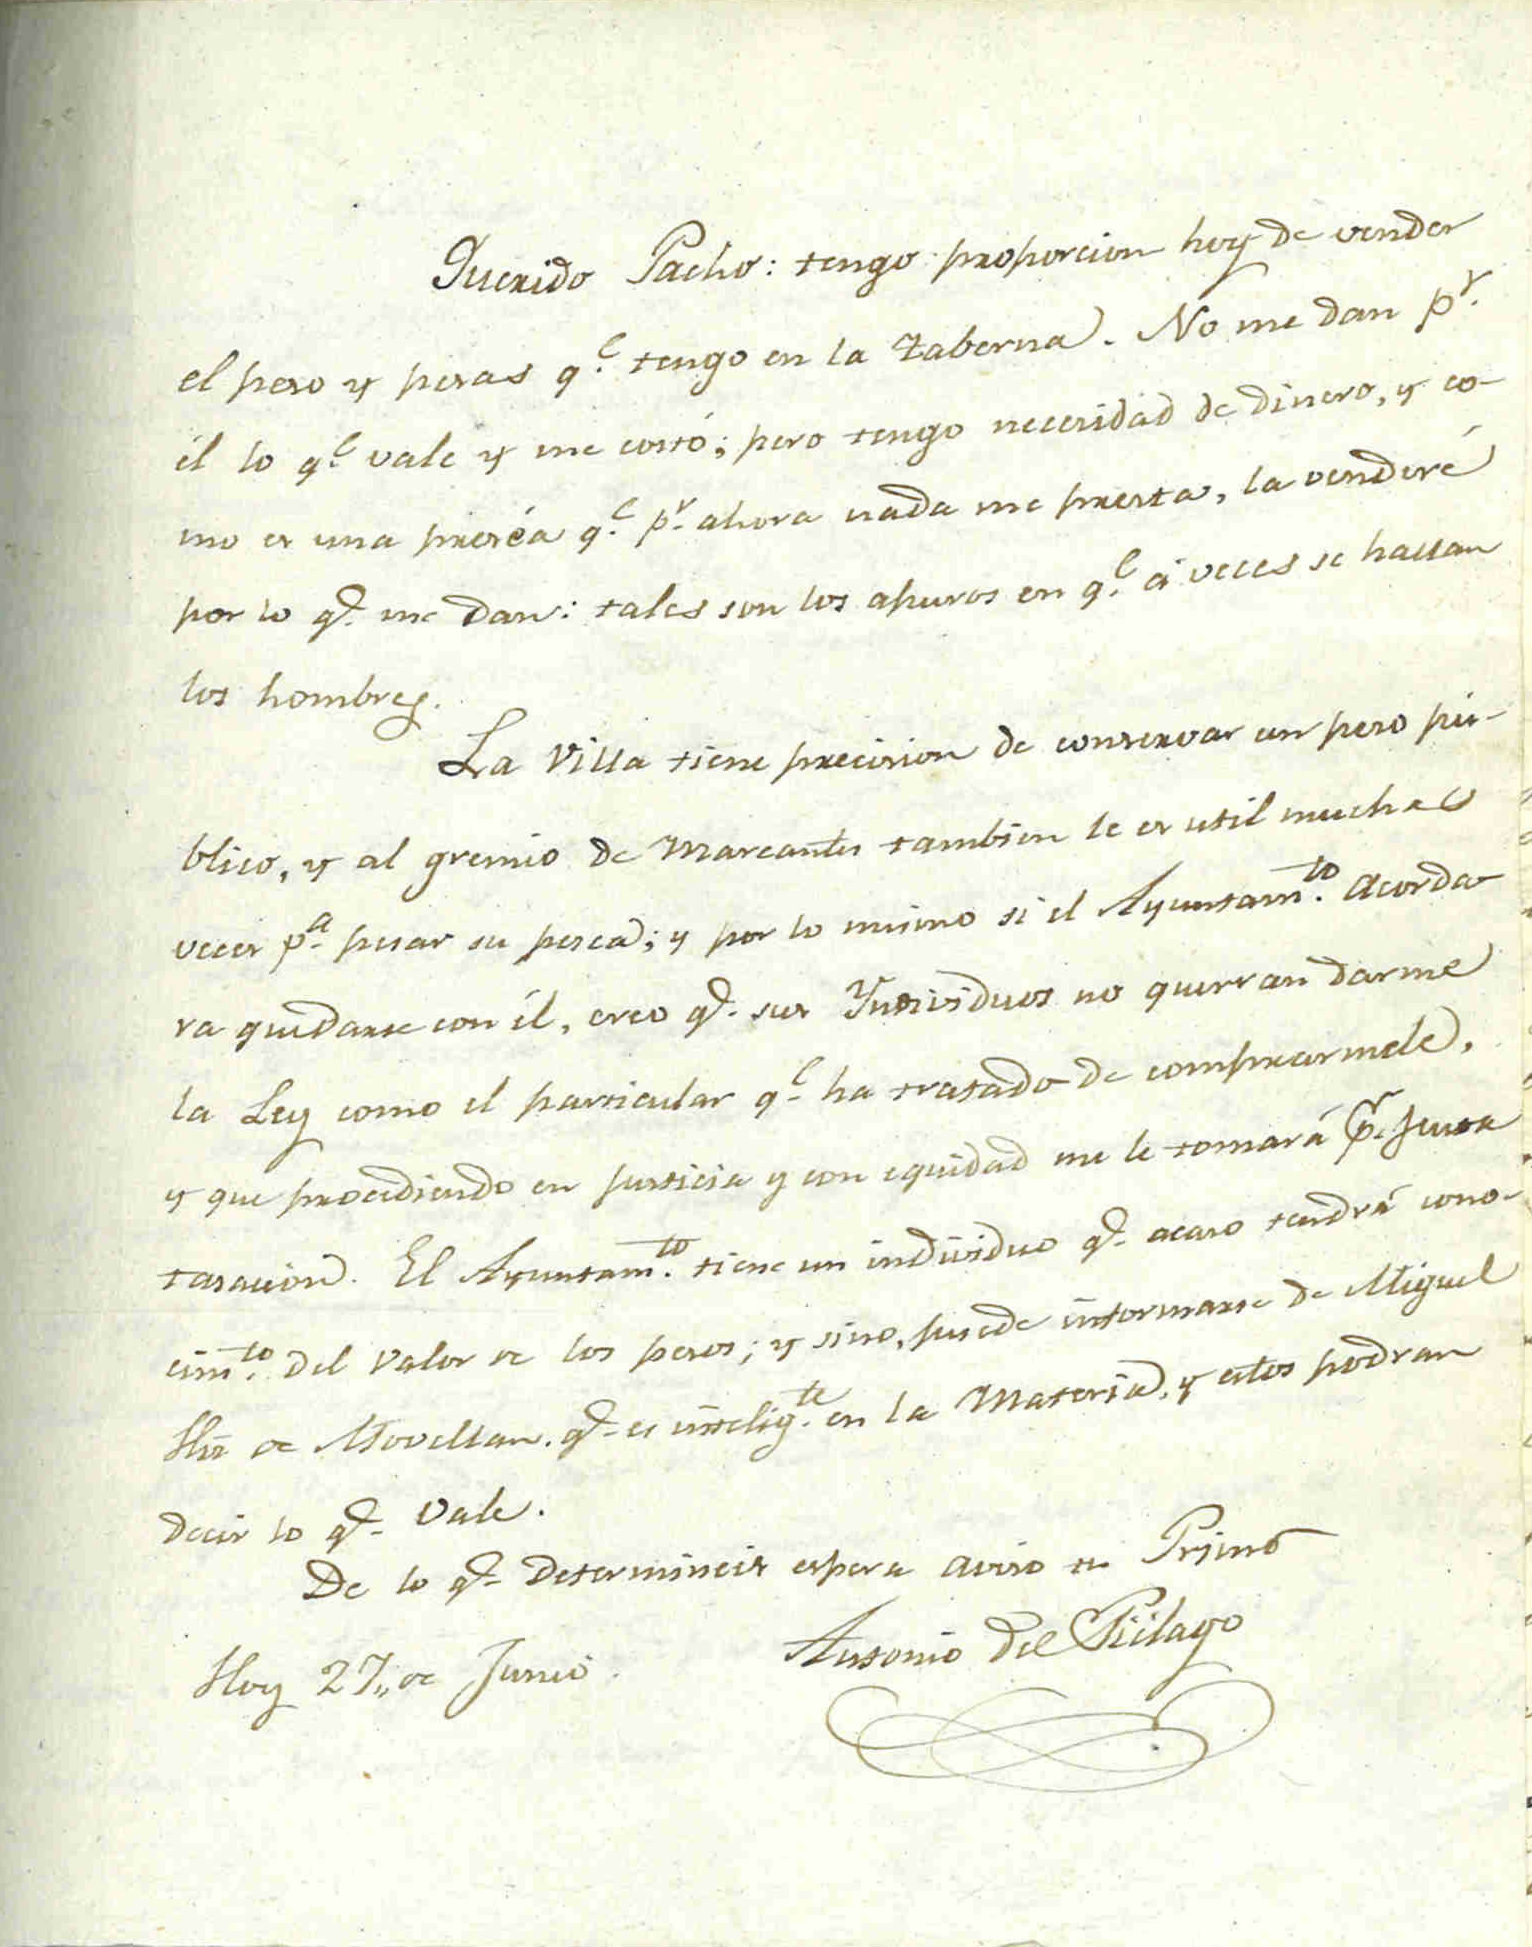 Querido Pacho: tengo proporcion hoy de vender
el peso y pesas q.e tengo en la taberna. No me dan p.r
él lo q.e vale y me costó; pero tengo necesidad de dinero, y co-
mo es una preséa q.e p.r ahora nada me presta, la venderé
por lo q.e me dan: tales son los apuros en q.e á veces se hallan
los hombres.
La Villa tiene precision de conservar un peso pú-
blico, y al gremio de Mareantes tambien le es util muchas
veces p.a pesar su pesca; y por lo mismo si el Ayuntam.to acorda-
ra quedarse con él, creo q.e sus Yndividuos no querran darme
la Ley como el particular q.e ha tratado de comprarmele,
y que procediendo en justicia y con equidad me le tomará p.r justa
tasacion. El Ayuntam.to tiene un individuo q.e acaso tendrá cono-
cim.to del valor de los pesos; y sino, puede informarse de Miguel
de Movellan. q.e es intelig.te en la Materia, y estos podran
decir lo q.e vale.
De lo q.e determineis espera aviso tu Primo
Antonio del Piélago
Hoy 27,, de Junio